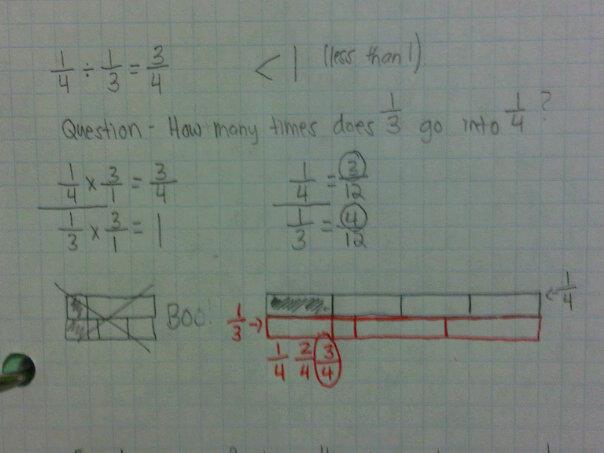 1/4 ÷ 1/3 = 3/4 < 1 (less than 1)
Question - How many times does 1/3 go into 1/4 ?
1/4 × 3/1 = 3/4
1/3 × 3/1 = 1
1/4 = 3/12
1/3 = 4/12
Boo!
< 1/4
1/3 →
1/4 2/4 3/4